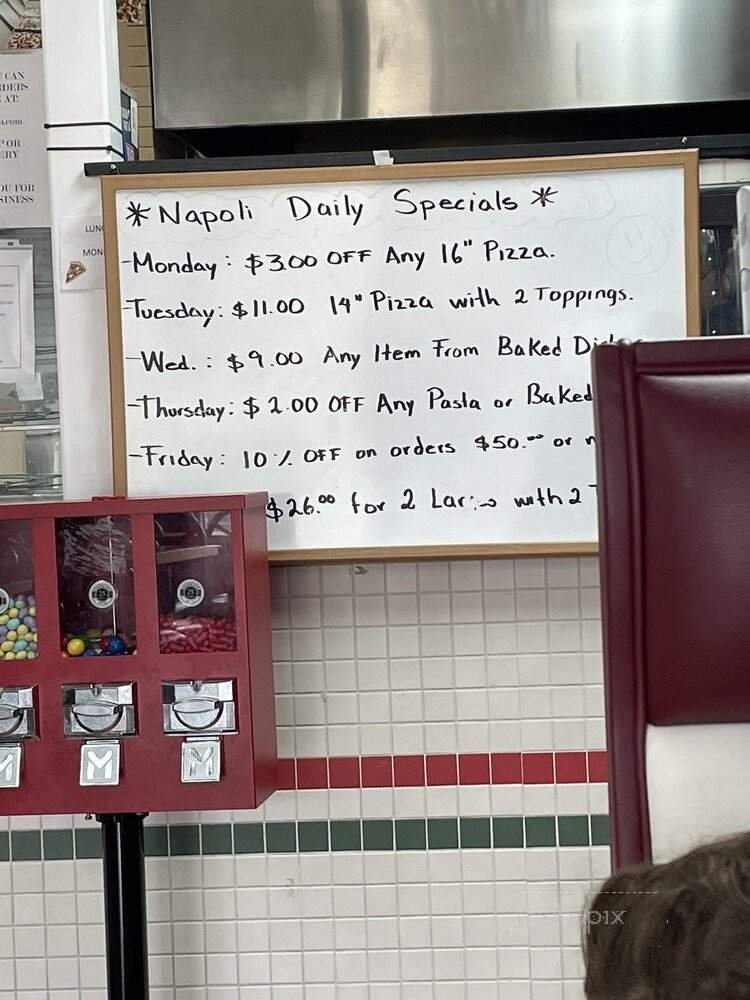 * Napoli Daily Specials *
-Monday: $3.00 OFF Any 16" Pizza.
-Tuesday: $11.00 14" Pizza with 2 Toppings.
-Wed.: $9.00 Any Item From Baked
-Thursday: $2.00 OFF Any Pasta or Baked
-Friday: 10% OFF on orders $50.00 or
$26.00 for 2 with 2
CAN
AT:
OR
FOR
M
M
pix